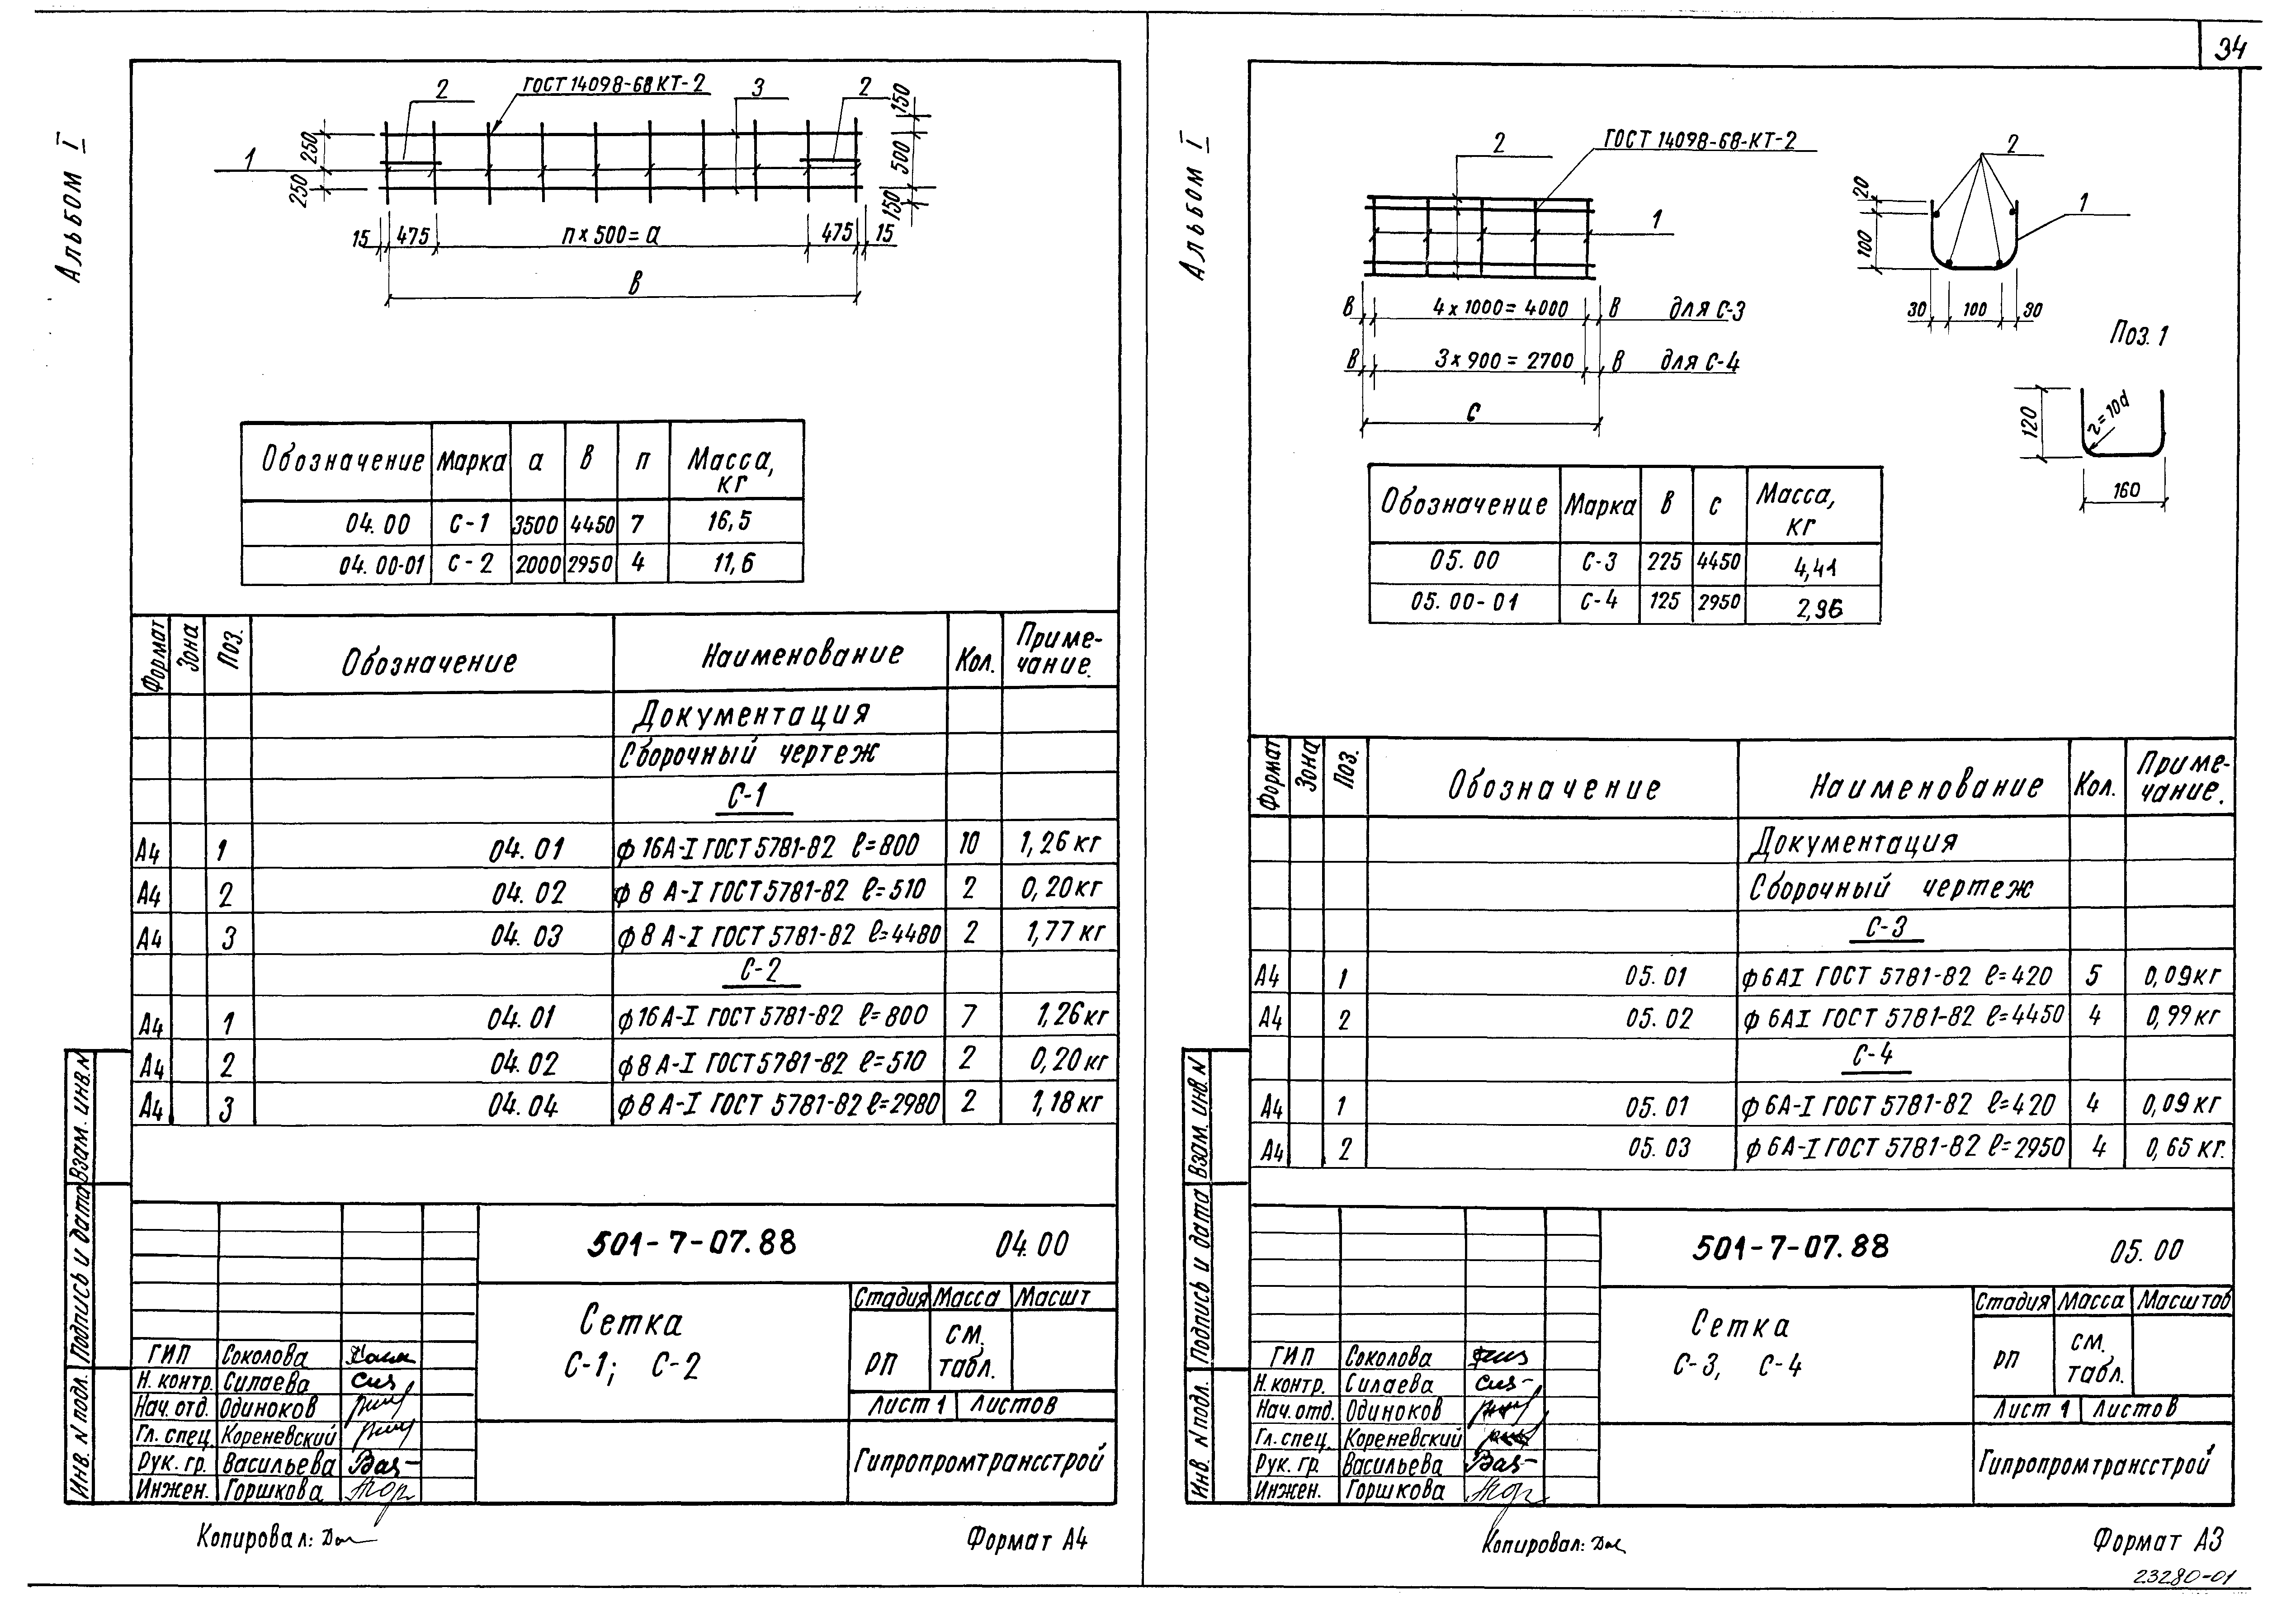 34
Альбом I
2
ГОСТ 14098-68 КТ-2
3
2
1
250
250
150
500
150
15
475
п х 500 = а
475
15
в
Обозначение Марка а в п Масса, кг
04.00 С-1 3500 4450 7 16,5
04.00-01 С-2 2000 2950 4 11,6
Формат Зона Поз. Обозначение Наименование Кол. Приме-чание.
Документация
Сборочный чертеж
С-1
А4 1 04.01 ф 16А-I ГОСТ 5781-82 ℓ=800 10 1,26 кг
А4 2 04.02 ф 8 А-I ГОСТ 5781-82 ℓ=510 2 0,20 кг
А4 3 04.03 ф 8 А-I ГОСТ 5781-82 ℓ=4480 2 1,77 кг
С-2
А4 1 04.01 ф 16А-I ГОСТ 5781-82 ℓ=800 7 1,26 кг
А4 2 04.02 ф 8 А-I ГОСТ 5781-82 ℓ=510 2 0,20 кг
А4 3 04.04 ф 8 А-I ГОСТ 5781-82 ℓ=2980 2 1,18 кг
Взам. инв. N
Подпись и дата
Инв. N подл.
501-7-07.88 04.00
Сетка
С-1; С-2
Стадия Масса Масшт
РП см. табл.
Лист 1 Листов
Гипропромтрансстрой
ГИП Соколова
Н. контр. Силаева
Нач. отд. Одиноков
Гл. спец. Кореневский
Рук. гр. Васильева
Инжен. Горшкова
Копировал:
Формат А4
Альбом I
2
ГОСТ 14098-68-КТ-2
1
в 4 х 1000 = 4000 в для С-3
в 3 х 900 = 2700 в для С-4
с
2
1
20
100
30
100
30
Поз. 1
120
r=10d
160
Обозначение Марка в с Масса, кг
05.00 С-3 225 4450 4,41
05.00-01 С-4 125 2950 2,96
Формат Зона Поз. Обозначение Наименование Кол. Приме-чание.
Документация
Сборочный чертеж
С-3
А4 1 05.01 ф 6АI ГОСТ 5781-82 ℓ=420 5 0,09 кг
А4 2 05.02 ф 6АI ГОСТ 5781-82 ℓ=4450 4 0,99 кг
С-4
А4 1 05.01 ф 6А-I ГОСТ 5781-82 ℓ=420 4 0,09 кг
А4 2 05.03 ф 6А-I ГОСТ 5781-82 ℓ=2950 4 0,65 кг.
Взам. инв. N
Подпись и дата
Инв. N подл.
501-7-07.88 05.00
Сетка
С-3, С-4
Стадия Масса Масштаб
РП см. табл.
Лист 1 Листов
Гипропромтрансстрой
ГИП Соколова
Н. контр. Силаева
Нач. отд. Одиноков
Гл. спец. Кореневский
Рук. гр. Васильева
Инжен. Горшкова
Копировал:
Формат А3
23280-01